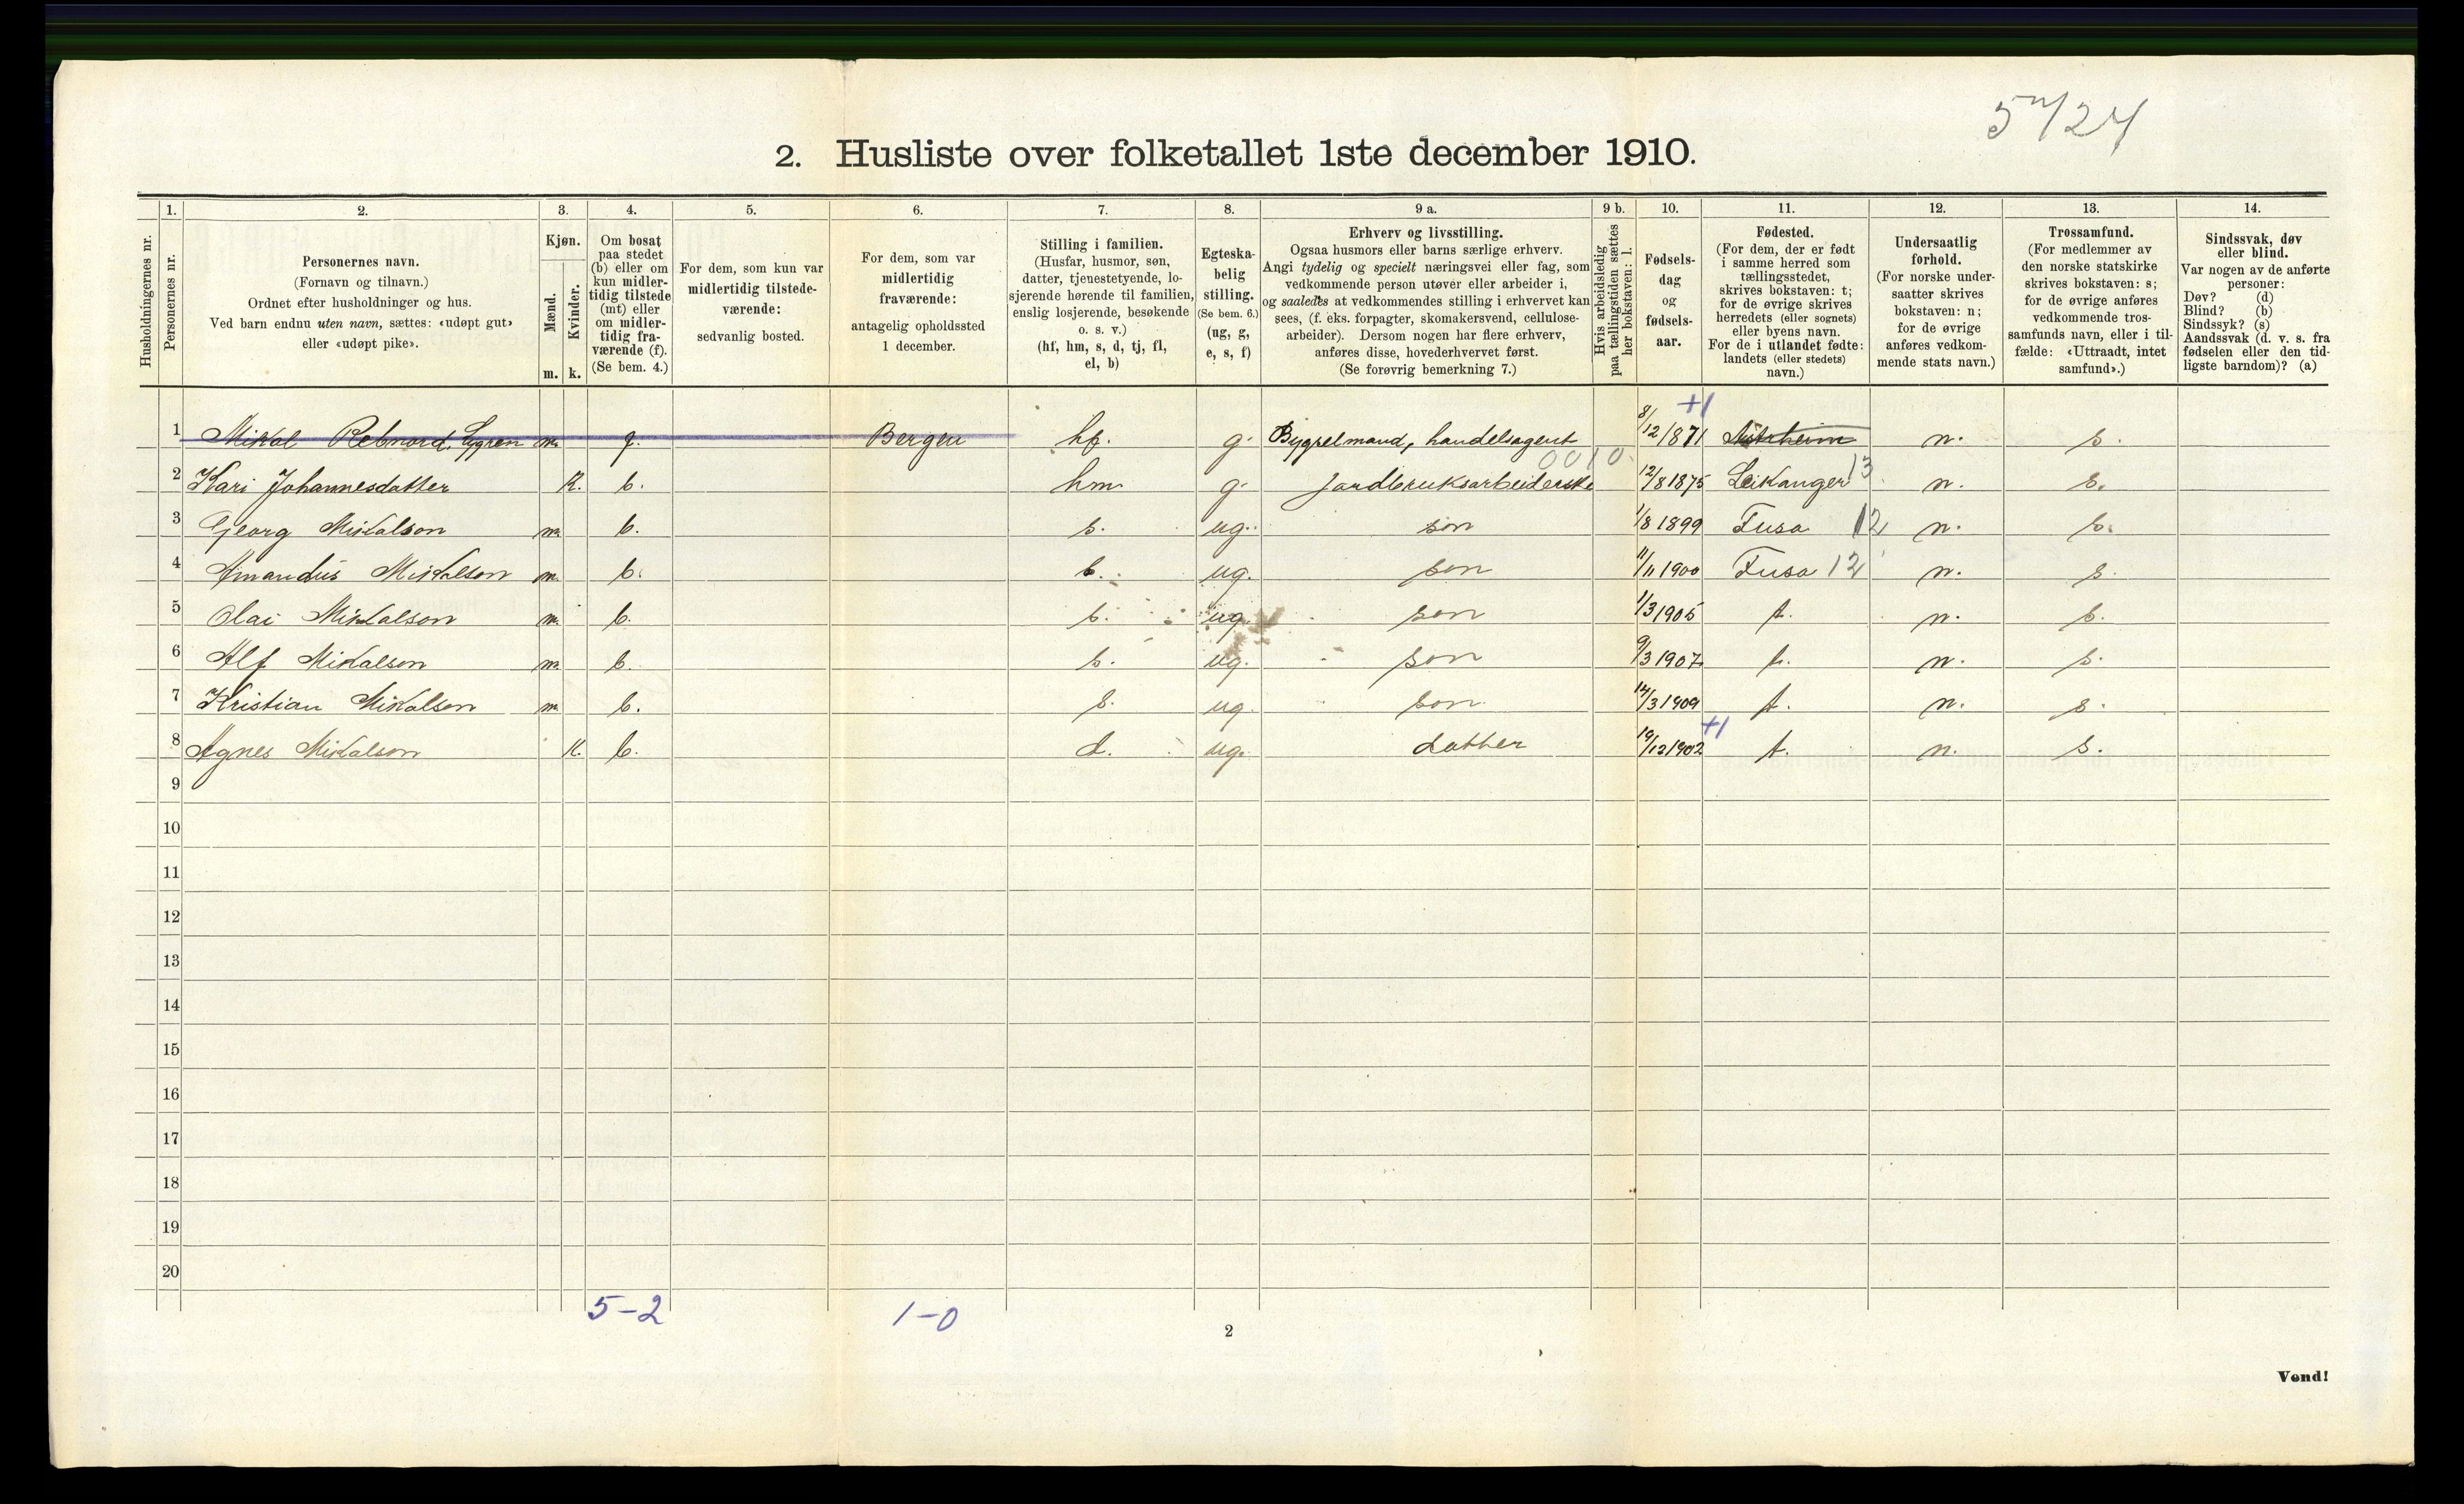 5 /24
2. Husliste over folketallet 1ste december 1910.
Husholdningernes nr.
1.
Personernes nr.
2.
Personernes navn.
(Fornavn og tilnavn.)
Ordnet efter husholdninger og hus.
Ved barn endnu uten navn, sættes: «udøpt gut»
eller «udøpt pike».
3.
Kjøn.
Mænd.
Kvinder.
m. k.
4.
Om bosat
paa stedet
(b) eller om
kun midler-
tidig tilstede
(mt) eller
om midler-
tidig fra-
værende (f).
(Se bem. 4.)
5.
For dem, som kun var
midlertidig tilstede-
værende:
sedvanlig bosted.
6.
For dem, som var
midlertidig
fraværende:
antagelig opholdssted
1 december.
7.
Stilling i familien.
(Husfar, husmor, søn,
datter, tjenestetyende, lo-
sjerende hørende til familien,
enslig losjerende, besøkende
o. s. v.)
(hf, hm, s, d, tj, fl,
el, b)
8.
Egteska-
belig
stilling.
(Se bem. 6.)
(ug, g,
e, s, f)
9 a.
Erhverv og livsstilling.
Ogsaa husmors eller barns særlige erhverv.
Angi tydelig og specielt næringsvei eller fag, som
vedkommende person utøver eller arbeider i,
og saaledes at vedkommendes stilling i erhvervet kan
sees, (f. eks. forpagter, skomakersvend, cellulose-
arbeider). Dersom nogen har flere erhverv,
anføres disse, hovederhvervet først.
(Se forøvrig bemerkning 7.)
9 b.
Hvis arbeidsledig
paa tællingstiden sættes
her bokstaven: l.
10.
Fødsels-
dag
og
fødsels-
aar.
11.
Fødested.
(For dem, der er født
i samme herred som
tællingsstedet,
skrives bokstaven: t;
for de øvrige skrives
herredets (eller sognets)
eller byens navn.
For de i utlandet fødte:
landets (eller stedets)
navn.)
12.
Undersaatlig
forhold.
(For norske under-
saatter skrives
bokstaven: n;
for de øvrige
anføres vedkom-
mende stats navn.)
13.
Trossamfund.
(For medlemmer av
den norske statskirke
skrives bokstaven: s;
for de øvrige anføres
vedkommende tros-
samfunds navn, eller i til-
fælde: «Uttraadt, intet
samfund».)
14.
Sindssvak, døv
eller blind.
Var nogen av de anførte
personer:
Døv? (d)
Blind? (b)
Sindssyk? (s)
Aandssvak (d. v. s. fra
fødselen eller den tid-
ligste barndom)? (a)
+1
1 Mikal Lygren m. f. Bergen hf. g. Bygselmand, handelsagent 8/12 1871 n. s.
0010
2 Kari Johannesdatter K. b. hm g. Jordbruksarbeiderske 12/8 1875 Leikanger 13 n. s.
3 Georg Mikalson m. b. s. ug. son 1/8 1899 Fusa 12 n. s.
4 Amandus Mikalson m. b. s. ug. son 11/11 1900 Fusa 12 n. s.
5 Olai Mikalson m. b. s. ug. son 1/3 1905 t. n. s.
6 Alf Mikalson m. b. s. ug. son 9/3 1907 t. n. s.
7 Kristian Mikalson m. b. s. ug. son 14/3 1909 t. n. s.
+1
8 Agnes Mikalson K. b. d. ug. datter 19/12 1902 t. n. s.
9
10
11
12
13
14
15
16
17
18
19
20
5-2 1-0
2
Vend!